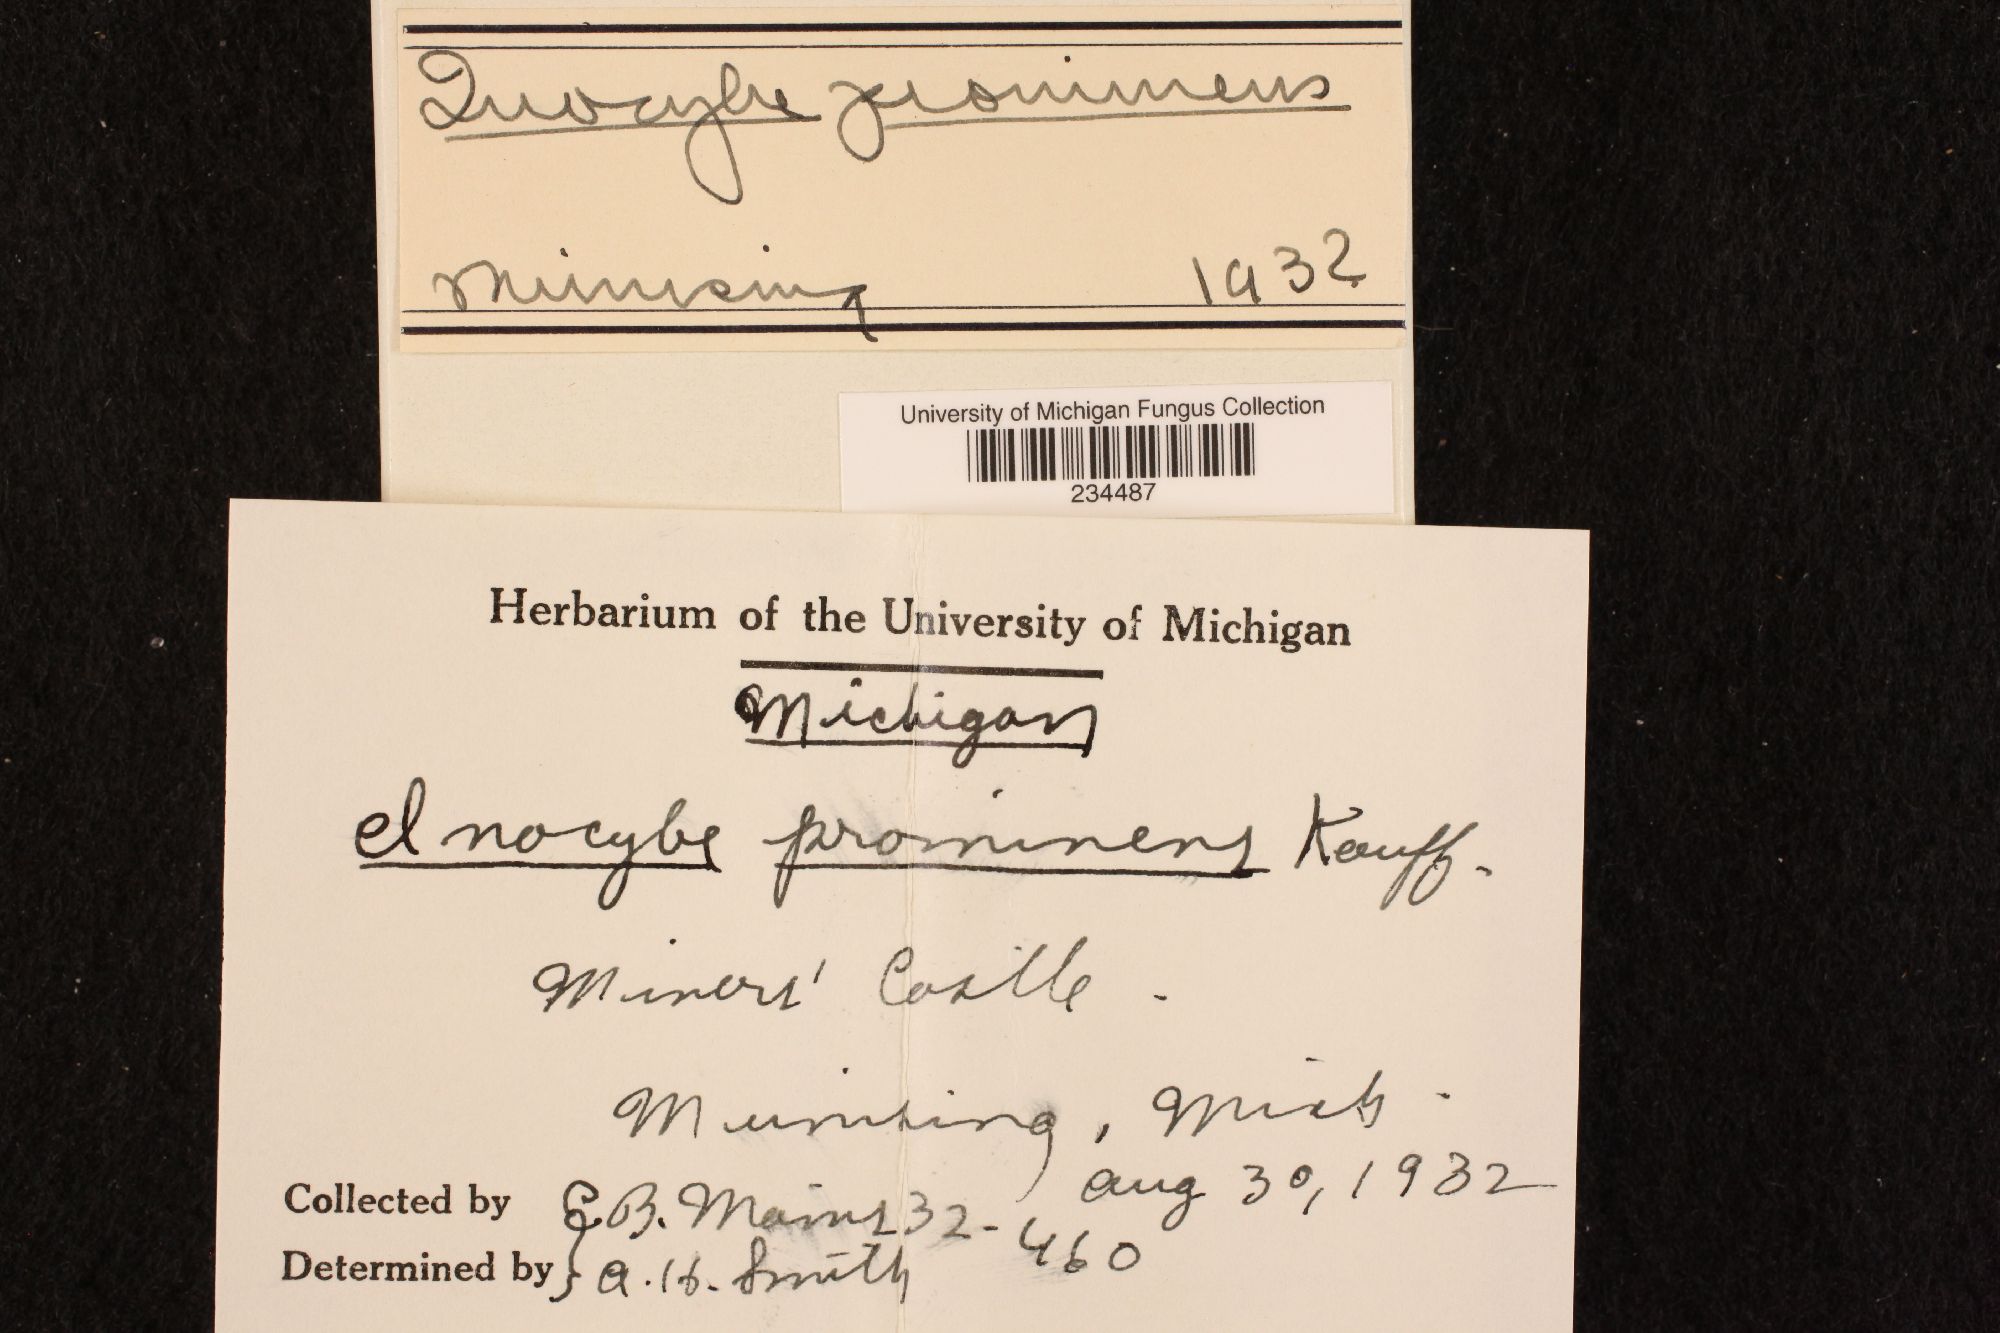 Inocybe prominens
Munising 1932
University of Michigan Fungus Collection
234487
Herbarium of the University of Michigan
Michigan
Inocybe prominens Kauff.
Miners' Castle.
Munising, Mich.
Aug 30, 1932
Collected by E.B. Mains 32-460
Determined by } A.H. Smith